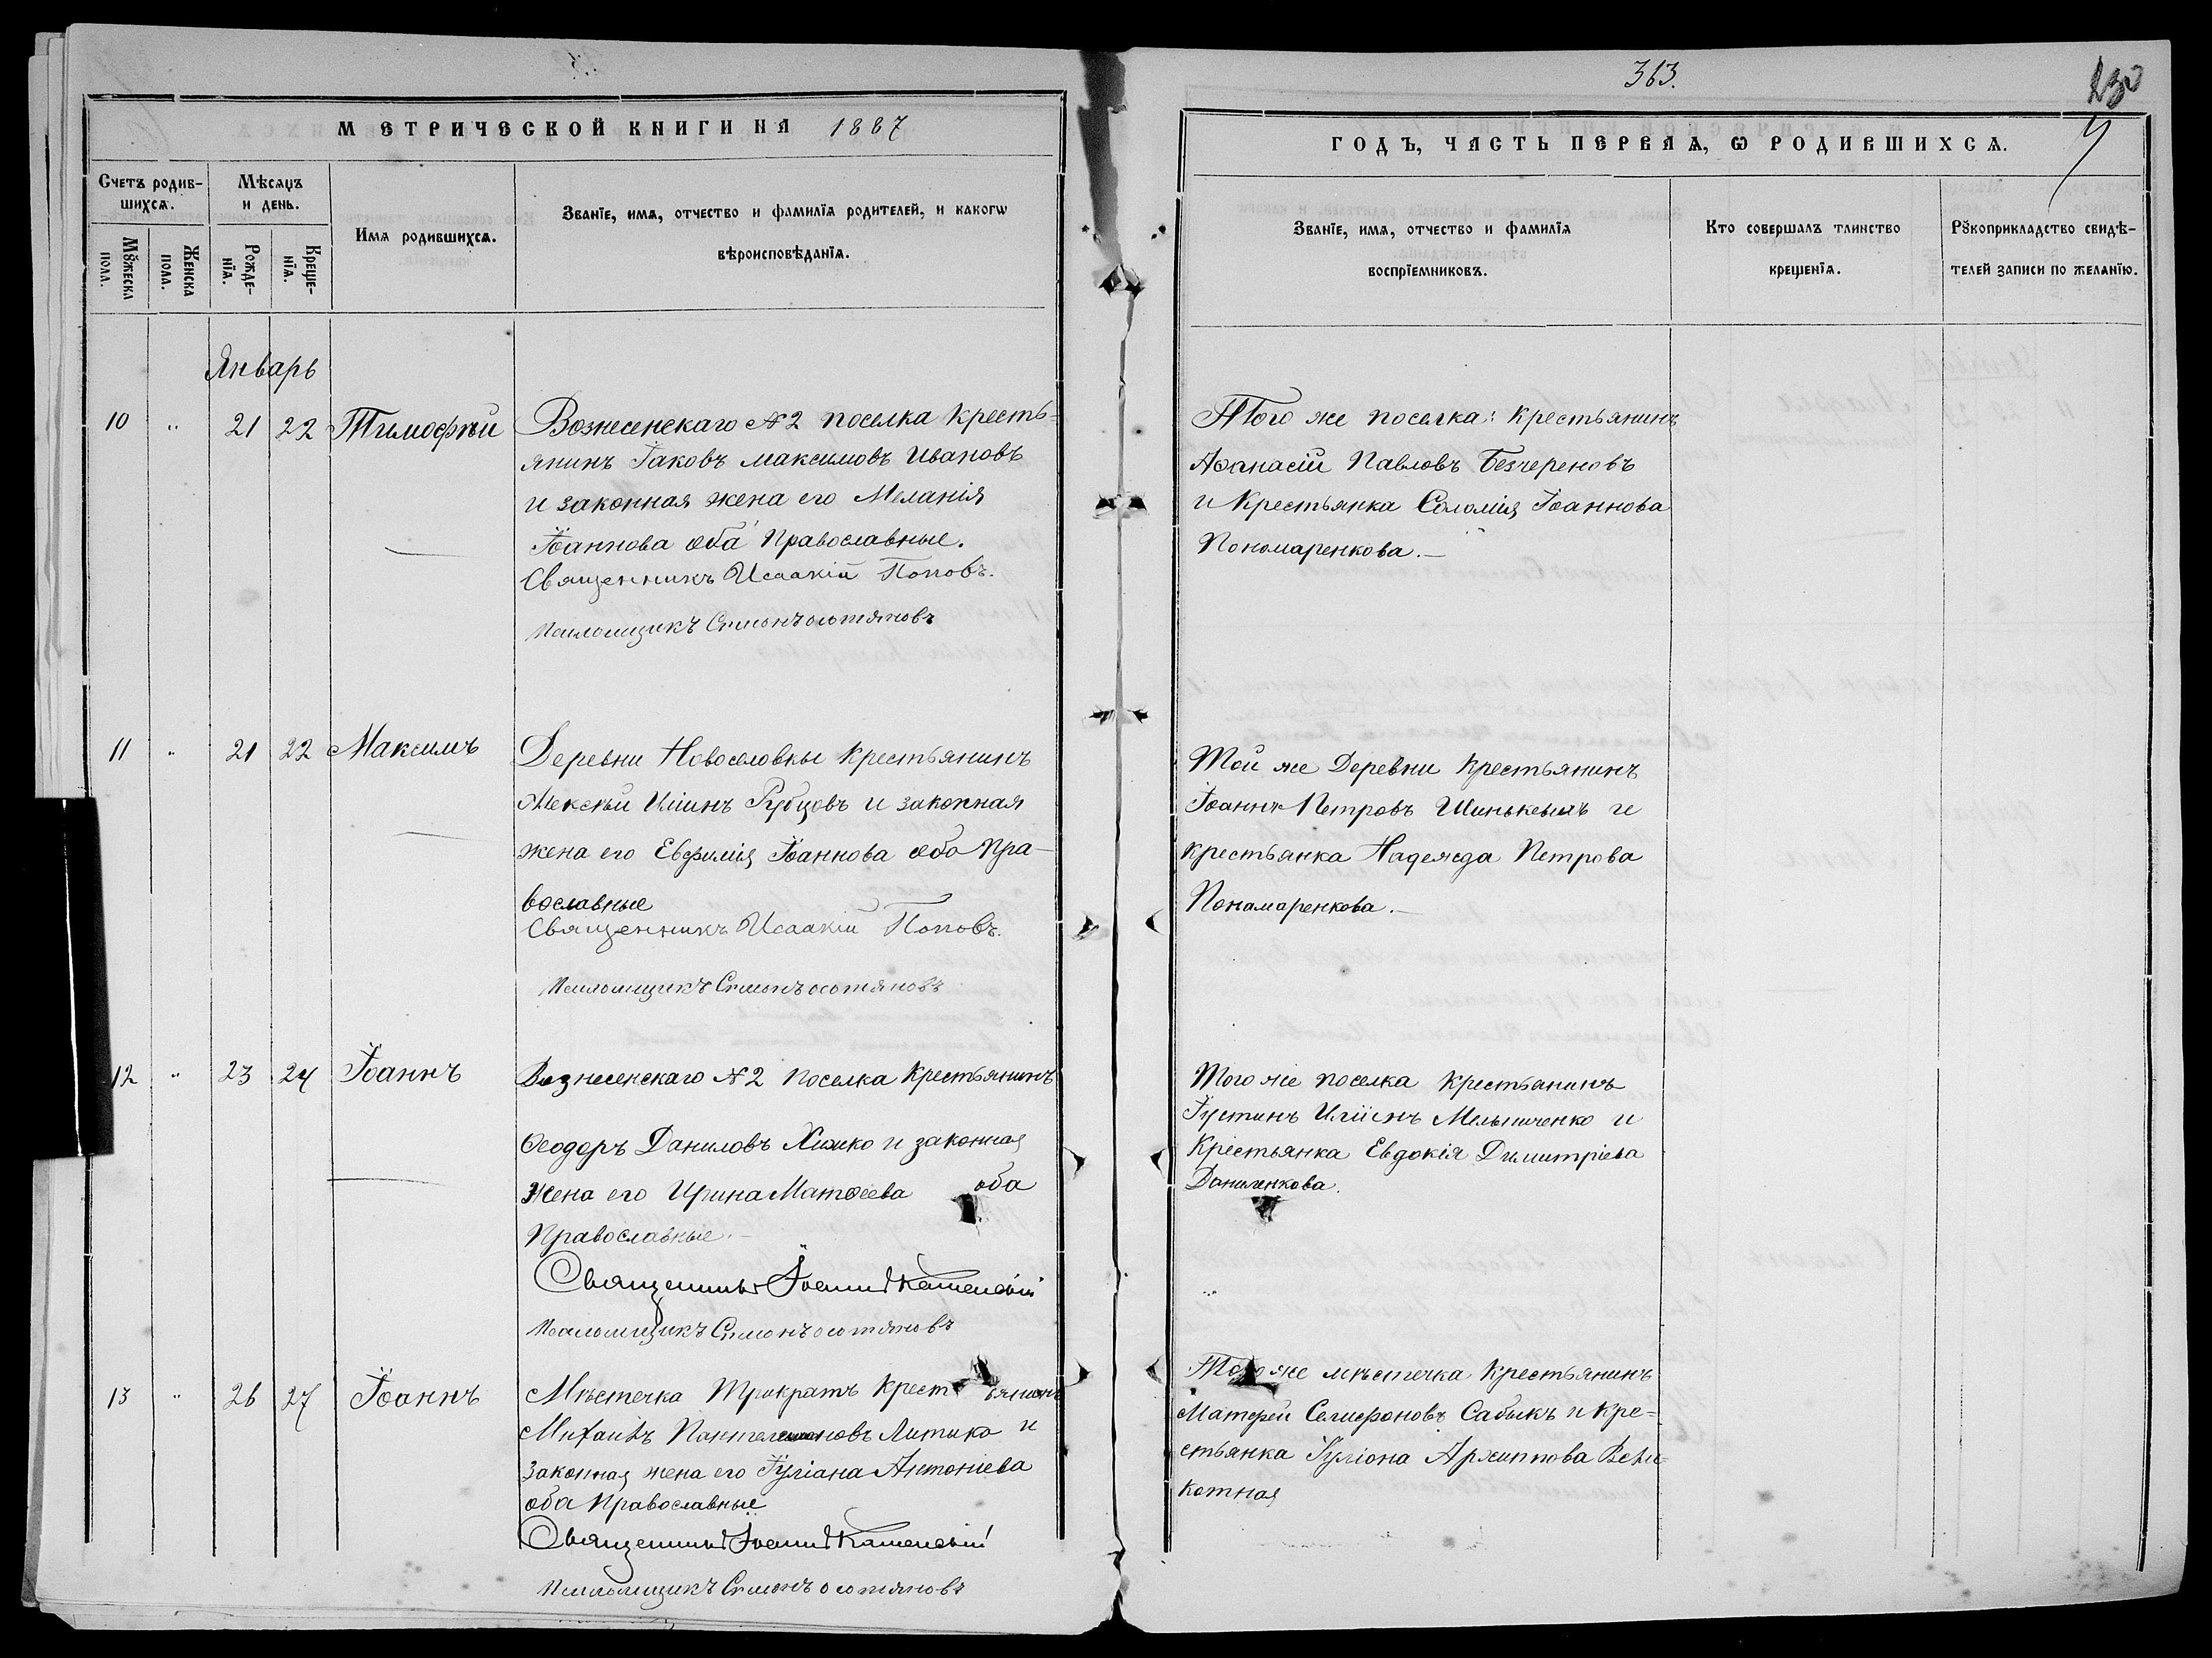 363.
230
МЕТРИЧЕСКОЙ КНИГИ НА 1887
ГОДЪ, ЧАСТЬ ПЕРВАЯ, Ѡ РОДИВШИХСѦ.
Счетъ родив-
шихсѧ.
Мѣсѧцъ
и день.
Имѧ родившихсѧ.
Званїе, имѧ, отчество и фамилїѧ родителей, и какогѡ
вѣроисповѣданїѧ.
Мꙋжеска
пола.
Женска
пола.
Рожде-
нїѧ.
Креще-
нїѧ.
Званїе, имѧ, отчество и фамилїѧ
воспрїемниковъ.
Кто совершалъ таинство
крещенїѧ.
Рꙋкоприкладство свидѣ-
телей записи по желанїю.
Январь
10 " 21 22 Тимофѣй
Вознесенскаго №2 поселка Кресть-
янинъ Іаковъ Максимовъ Ивановъ
и законная жена его Меланія
Іоаннова оба Православные.
Священникъ Исаакій Поповъ.
Псаломщикъ Симонъ
Того же поселка: крестьянинъ
Аѳанасій Павловъ Безчереновъ
и Крестьянка Соломія Іоаннова
Пономаренкова.—
11 " 21 22 Максимъ
Деревни Новоселовки Крестьянинъ
Алексѣй Иліинъ Рубцовъ и законная
жена его Евфимія Іоаннова оба Пра-
вославные
Священникъ Исаакій Поповъ.
Псаломщикъ Симонъ
Той же Деревни Крестьянинъ
Іоаннъ Петровъ и
крестьянка Надежда Петрова
Понамаренкова.—
12 " 23 24 Іоаннъ
Вознесенскаго №2 Поселка Крестьянинъ
Ѳеодоръ Даниловъ Химко и законная
Жена его Ирина Матѳеева оба
Православные.—
Священникъ Іоаннъ Каменскій
Псаломщикъ Симонъ
Того же поселка Крестьянинъ
Іустинъ Иліинъ Мельниченко и
Крестьянка Евдокія Димитріева
Даниленкова.
13 " 26 27 Іоаннъ
Мѣстечка Трикратъ Крестьянинъ
Михаилъ Пантелеимоновъ Литико и
Законная жена его Іуліана Антоніева
оба Православные
Священникъ Іоаннъ Каменскій
Псаломщикъ Симонъ
Того же мѣстечка Крестьянинъ
Матфей Селифоновъ Сабыкъ и Кре-
стьянка Іуліона Архиппова